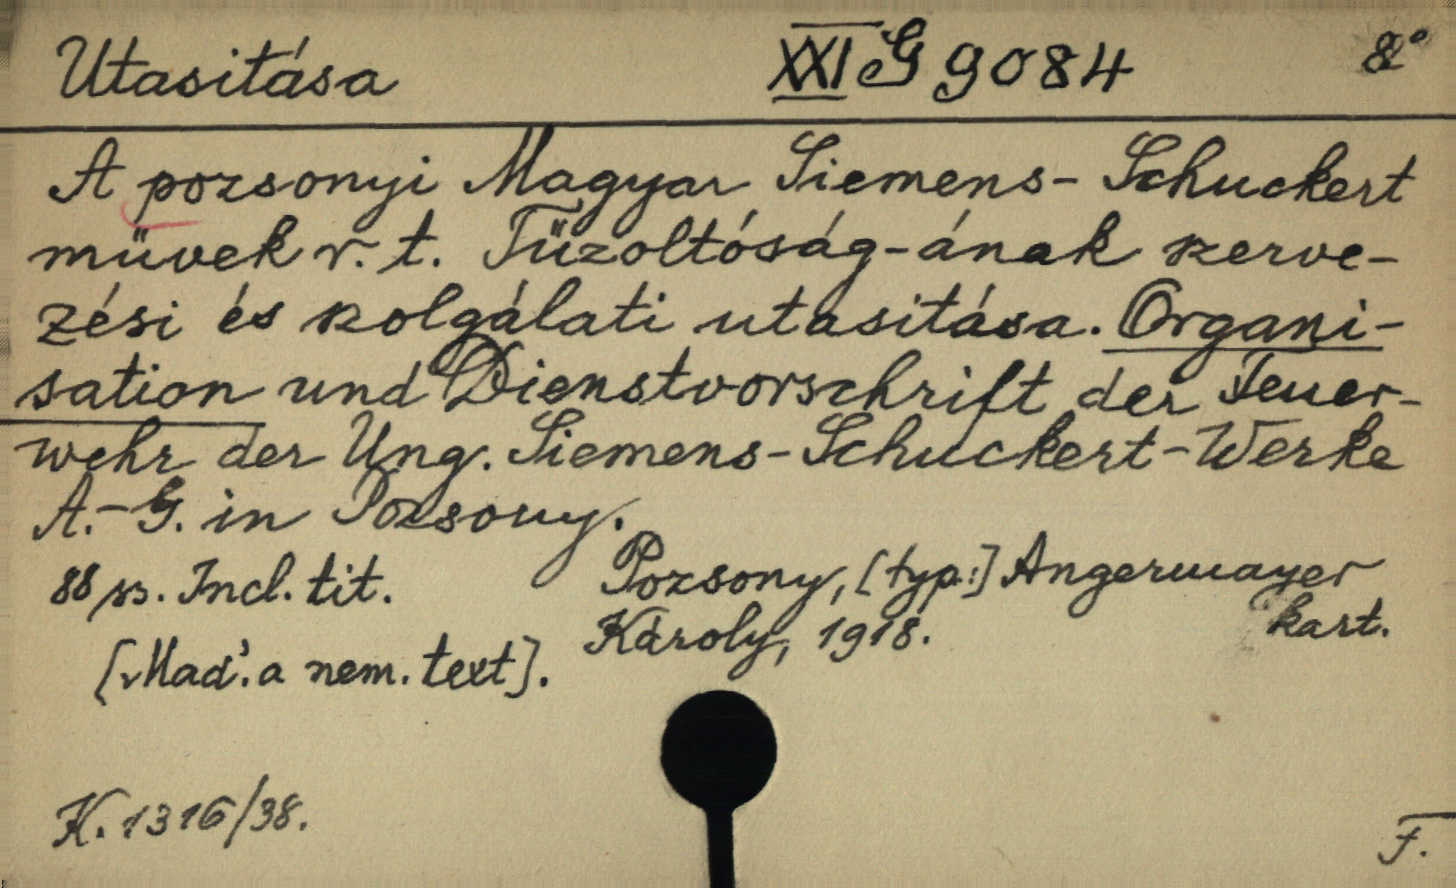 Utasitása XXI G 9084 8°
A pozsonyi Magyar Siemens-Schuckert
müvek r. t. Tüzoltóság-ának szerve-
zési és szolgálati utasitása. Organi-
sation und Dienstvorschrift der Feuer-
wehr der Ung. Siemens-Schuckert-Werke
A.-G. in Pozsony.
88 ss. Incl. tit. Pozsony, [typ.:] Angermayer
Károly, 1918. kart.
[Maď. a nem. text].
K. 1316/38.
F.